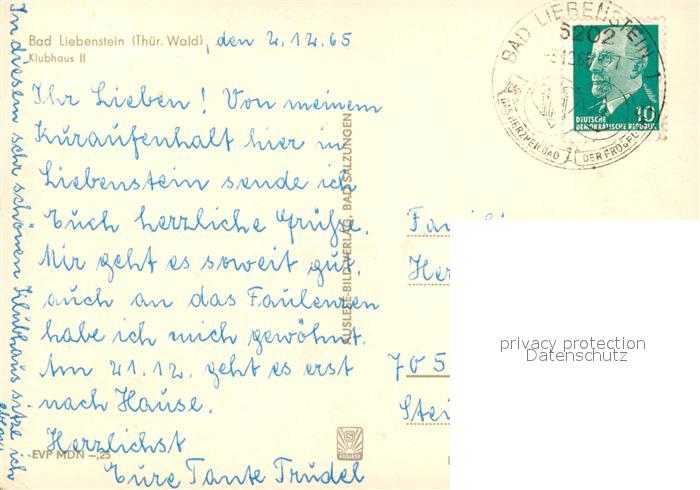 Bad Liebenstein (Thür. Wald), den 2.12.65
Klubhaus II
Ihr Lieben! Von meinem
Kuraufenhalt hier in
Liebenstein sende ich
Euch herzliche Grüße.
Mir geht es soweit gut,
auch an das Faulenzen
habe ich mich gewöhnt.
Am 21.12. geht es erst
nach Hause.
Herzlichst
Eure Tante Trudel
EVP MDN -,25
In diesem sehr schönen Klubhaus sitze ich
AUSLESE-BILD-VERLAG, BAD SALZUNGEN
AUSLESE
BAD LIEBENSTEIN 1
6202
DAS HERZHEILBAD
DER FRÖBEL
10
DEUTSCHE
DEMOKRATISCHE REPUBLIK
Her
705
Stei
privacy protection
Datenschutz